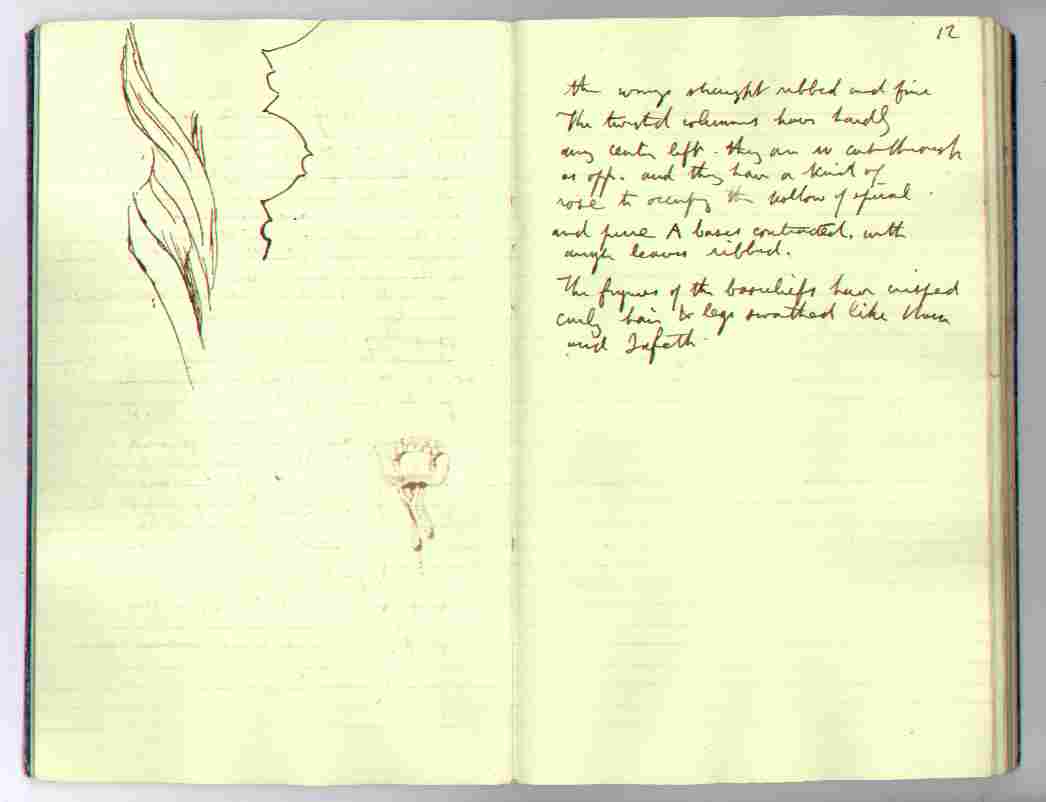 12
the wings straight ribbed and fine
The twisted columns have hardly
any center left - they are so cut through
as opp. and they have a kind of
rose to occupy the hollow of spiral
and pure A bases contracted, with
angle leaves ribbed.
The figures of the basreliefs have crisped
curly hair & legs swathed like
and